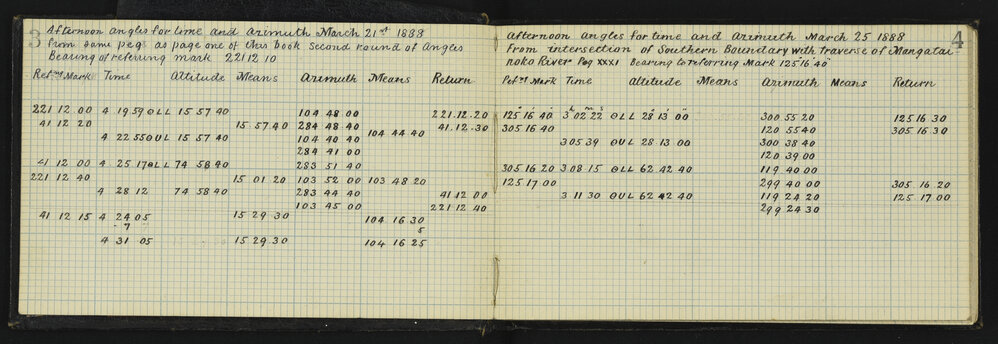 3
Afternoon angles for time and Azimuth March 21st 1888
from same pegs as page one of this book Second round of Angles
Bearing of referring mark 221 12 10
Refng Mark Time Altitude Means Azimuth Means Return
221 12 00 4 19 59 OLL 15 57 40 104 48 00 221.12.20
41 12 20 15 57 40 284 48 40 41.12.30
4 22 55 OUL 15 57 40 104 40 40 104 44 40
284 41 00
41 12 00 4 25 17 OLL 74 58 40 283 51 40
221 12 40 15 01 20 103 52 00 103 48 20
4 28 12 74 58 40 283 44 40 41 12 00
103 45 00 221 12 40
41 12 15 4 24 05 15 29 30 104 16 30
-7 5
4 31 05 15 29 30 104 16 25
4
Afternoon angles for time and Azimuth March 25 1888
From intersection of Southern Boundary with traverse of Mangatai
noko River Peg XXXI Bearing to referring Mark 125°16'40"
Refng Mark Time Altitude Means Azimuth Means Return
125° 16' 40" 3h 02m 22s OLL 28° 13' 00" 300 55 20 125 16 30
305 16 40 120 55 40 305 16 30
3 05 39 OUL 28 13 00 300 38 40
120 39 00
305 16 20 3 08 15 OLL 62 42 40 119 40 00
125 17 00 299 40 00 305 16 20
3 11 30 OUL 62 42 40 119 24 20 125 17 00
299 24 30